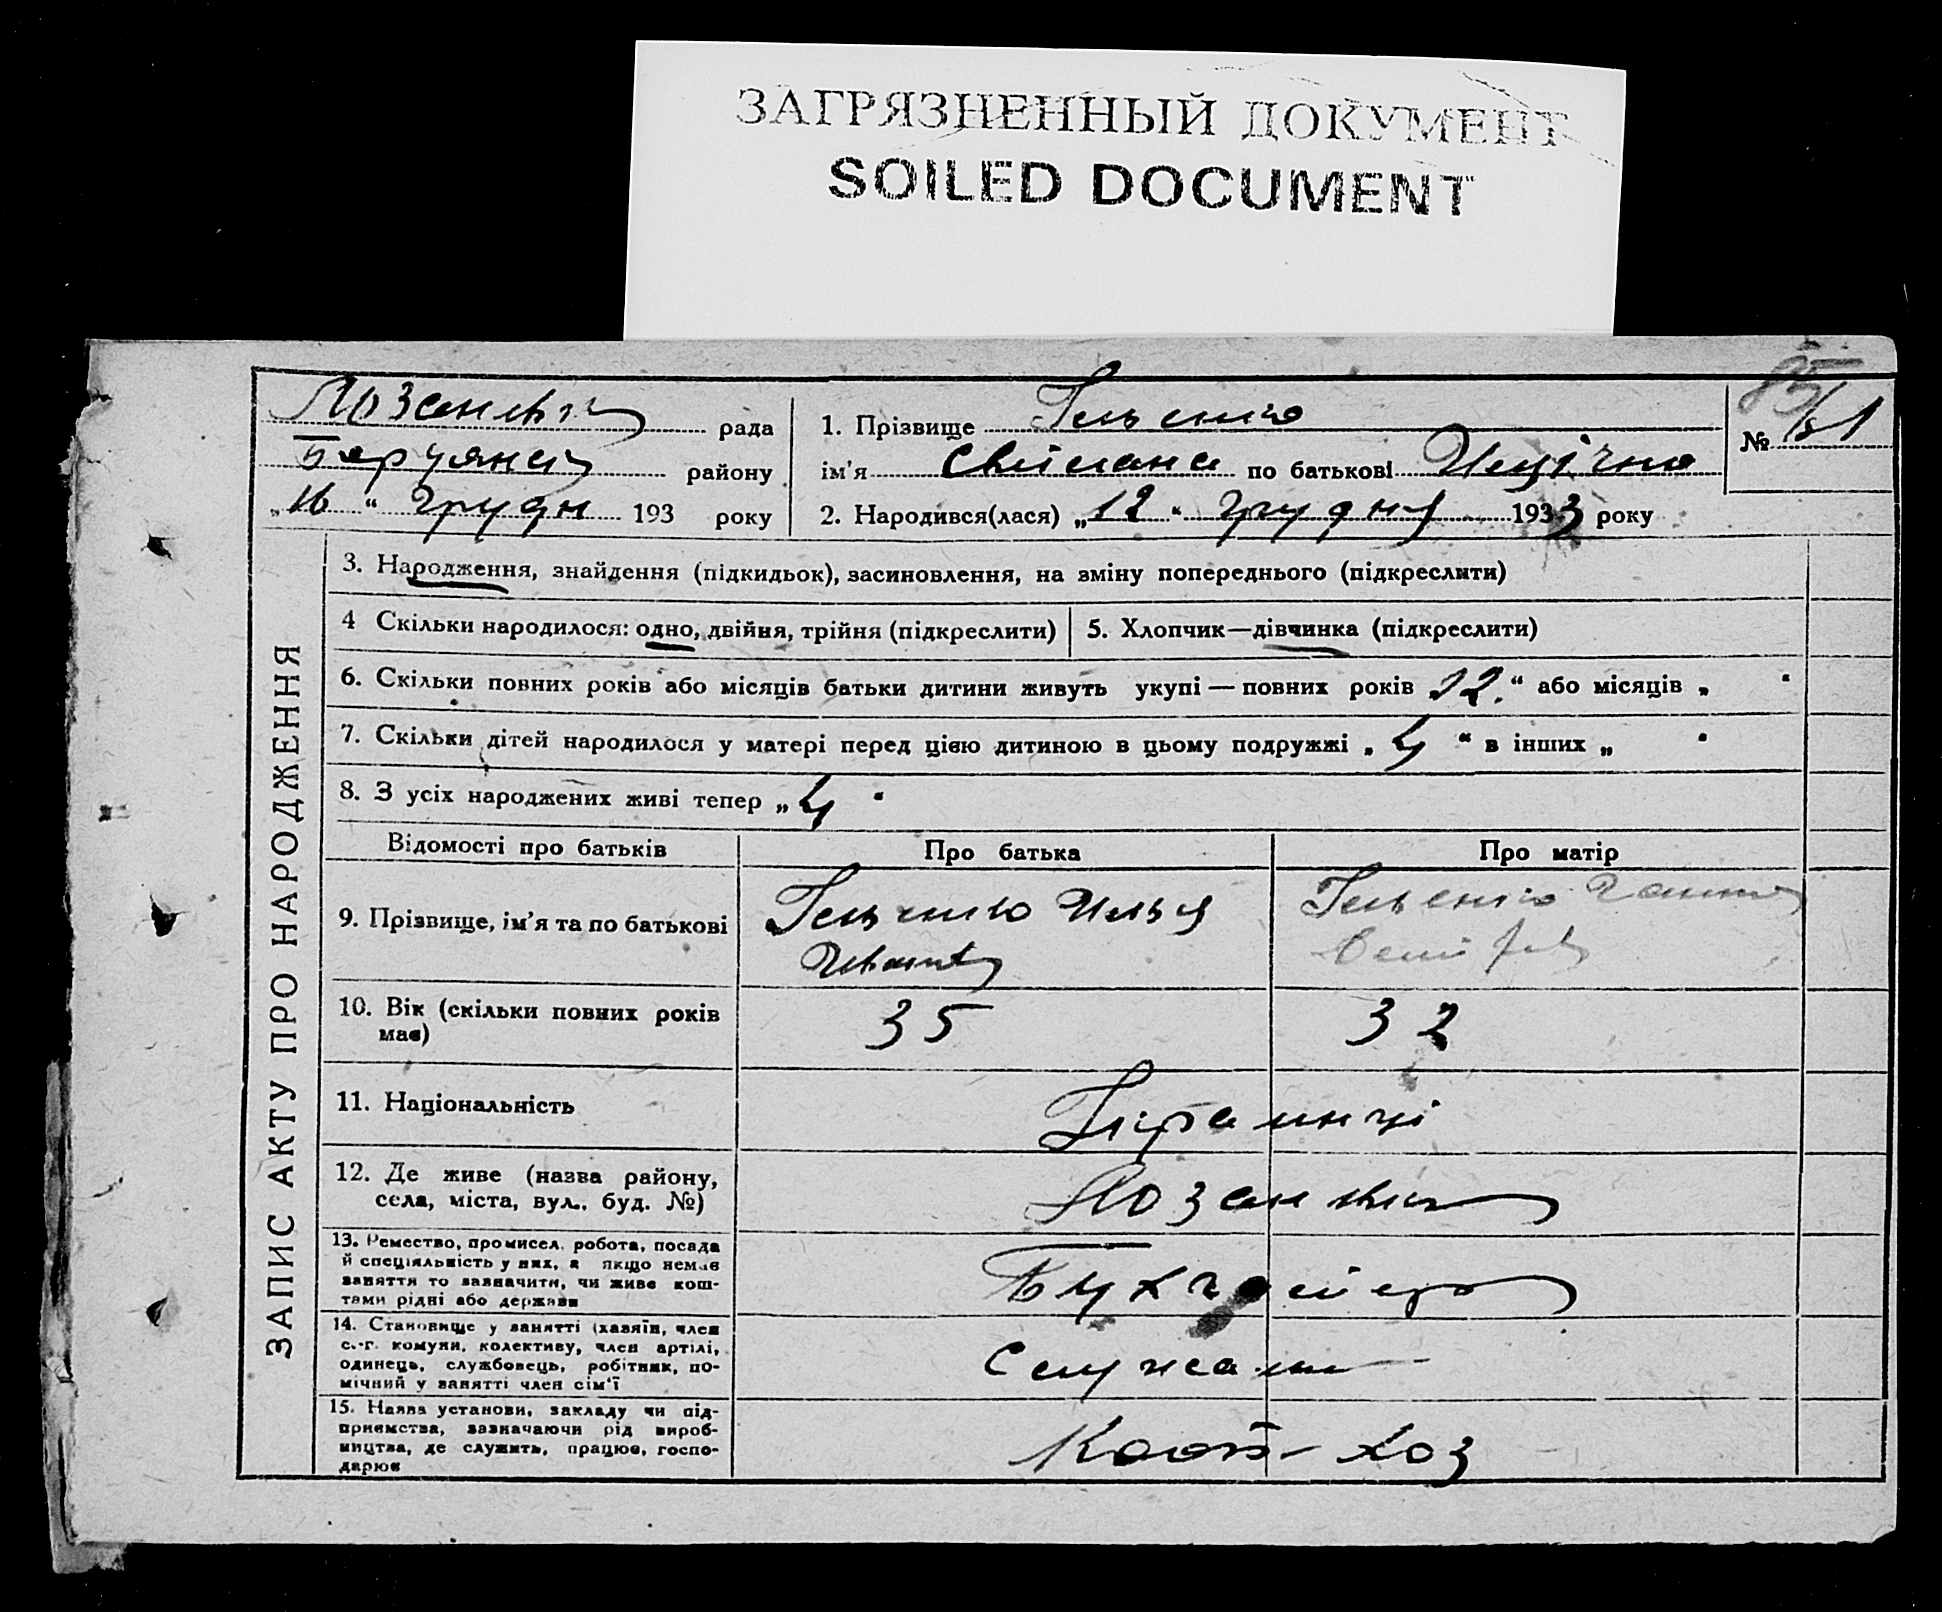 ЗАГРЯЗНЕННЫЙ ДОКУМЕНТ
SOILED DOCUMENT
рада
району
„16“ грудн 193 року
1. Прізвище
ім'я Світлана по батькові
2. Народився(лася) „12“ грудня 1933 року
№ 51
3. Народження, знайдення (підкидьок), засиновлення, на зміну попереднього (підкреслити)
4 Скільки народилося: одно, двійня, трійня (підкреслити)
5. Хлопчик—дівчинка (підкреслити)
6. Скільки повних років або місяців батьки дитини живуть укупі — повних років 12.“ або місяців „ “
7. Скільки дітей народилося у матері перед цією дитиною в цьому подружжі „ 4 “ в інших „ “
8. З усіх народжених живі тепер „ 4 “
ЗАПИС АКТУ ПРО НАРОДЖЕННЯ
Відомості про батьків
Про батька
Про матір
9. Прізвище, ім'я та по батькові
Илья
10. Вік (скільки повних років
має)
35
32
11. Національність
Українці
12. Де живе (назва району,
села, міста, вул., буд. №)
13. Ремество, промисел, робота, посада
й спеціяльність у них, а якщо немає
заняття то зазначити, чи живе кош-
тами рідні або держави
Бухгалтер
14. Становище у занятті (хазяїн, член
с.-г. комуни, колективу, член артілі,
одинець, службовець, робітник, по-
мічний у занятті член сім'ї
15. Назва установи, закладу чи під-
приємства, зазначаючи рід вироб-
ництва, де служить, працює, госпо-
дарює
хоз